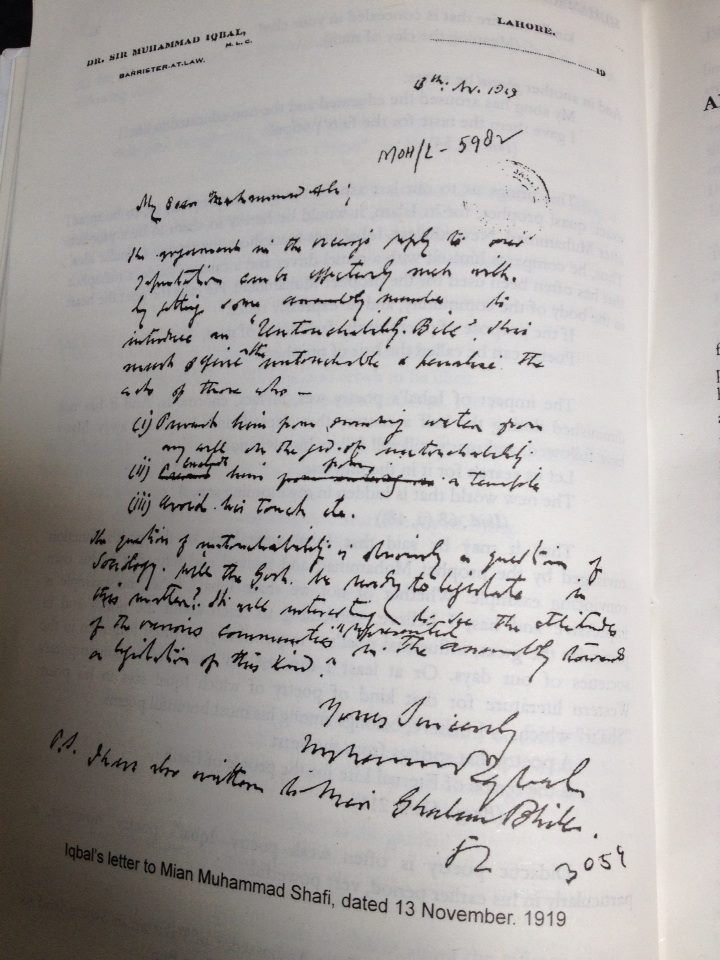 DR. SIR MUHAMMAD IQBAL,
M. L. C.
BARRISTER-AT-LAW.
LAHORE.
19
13th: Nov. 19
MOH/L - 5982
My dear Muhammad
The argument in the reply to our
Deputation can be effectively met with.
by getting some assembly member to
introduce an "Untouchability Bill". This
must define the untouchable & penalise the
acts of those who —
(i) Prevent him from drawing water from
any well on the grd. of untouchability.
(ii) him from a temple
(iii) avoid his touch etc.
The question of untouchability is obviously a question of
Sociology. Will the Govt. be ready to legislate in
this matter? It will interesting to see the attitudes
of the various communities represented in the assembly towards
a legislation of this kind.
Yours Sincerely
Muhammad Iqbal
P.S. I have also written to Ghulam Bhik.
52
3054
Iqbal's letter to Mian Muhammad Shafi, dated 13 November. 1919